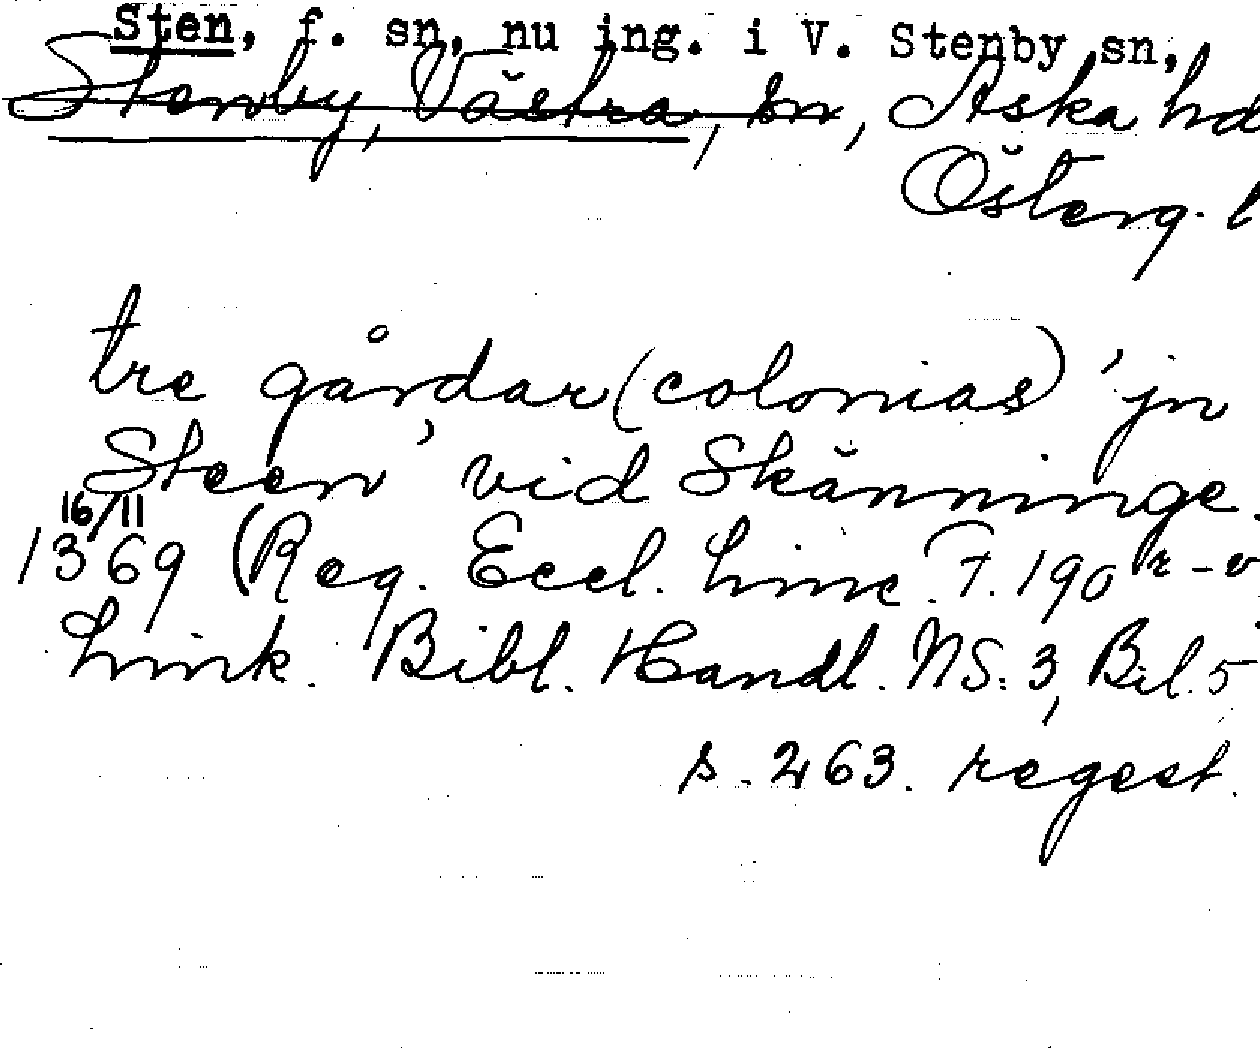 Sten, f. sn, nu ing. i V. Stenby sn,
Stenby, Västra, sn, Aska hd
Österg. l
tre gårdar (colonias) 'jn
Steen' vid Skänninge.
16/11
1369 (Reg. Eccl. Linc. F. 190 r-v
Link. Bibl. Handl. NS. 3, Bil. 5
s. 263. regest.